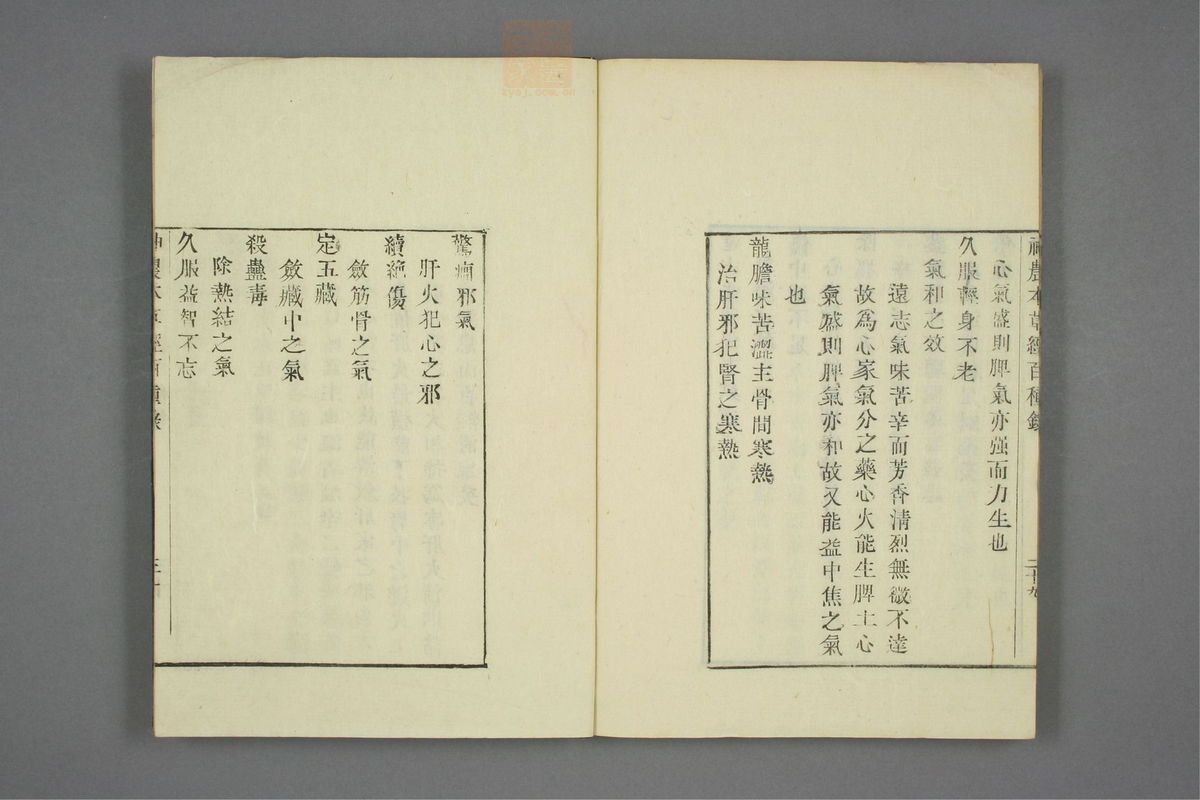 神農本草經百種錄
二十九
心氣盛則脾氣亦强而力生也
久服輕身不老
氣和之效
遠志氣味苦辛而芳香清烈無微不達
故為心家氣分之藥心火能生脾土心
氣盛則脾氣亦和故又能益中焦之氣
也
龍膽味苦澀主骨間寒熱
治肝邪犯腎之寒熱
驚癎邪氣
肝火犯心之邪
續絕傷
斂筋骨之氣
定五藏
斂藏中之氣
殺蠱毒
除熱結之氣
久服益智不忘
神農本草經百種錄
三十
zysj.com.cn